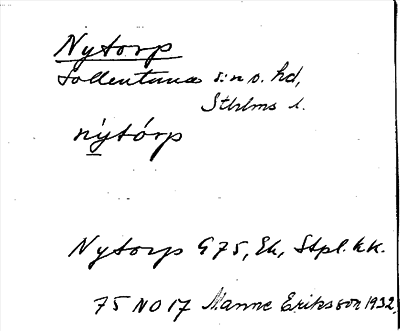 Nytorp
Sollentuna s:n o. hd,
Sthlms l.
nýtórp
Nytorp G75, Ek, Stpl. kk.
75 NO 17 Manne Eriksson 1932.